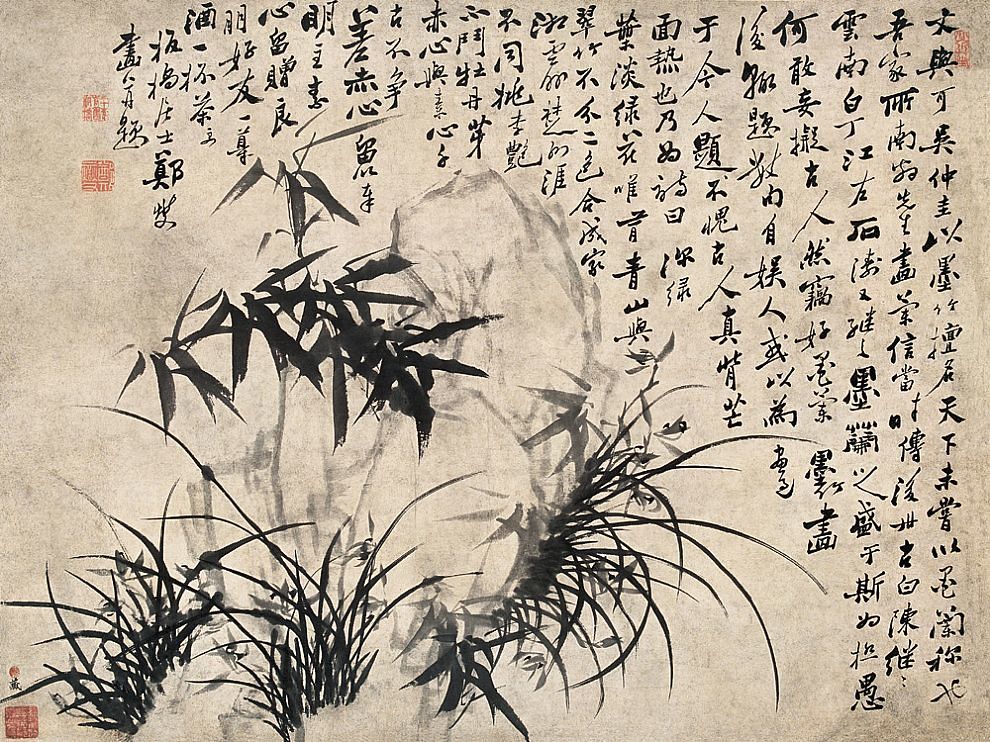 文與可吳仲圭以墨竹擅名天下未嘗以墨蘭稱也
吾家所南翁先生畫蘭信當時傳後世古白陳繼之
雲南白丁江左石濤又繼之墨蘭之盛于斯為極愚
何敢妄擬古人然竊好墨蘭墨竹畫
後輒題數句自娛人或以為畫
于今人題不愧古人真背芒
面熱也乃為詩曰深綠
葉淡綠花唯青山與
翠竹不分二色合成家
湘雲楚水涯
不同桃李艷
不鬥牡丹芽
赤心與素心千
古不爭
差赤心留以奉
明主素
心留贈良
朋好友一尊
酒一杯茶
板橋居士鄭燮
畫并題
藏